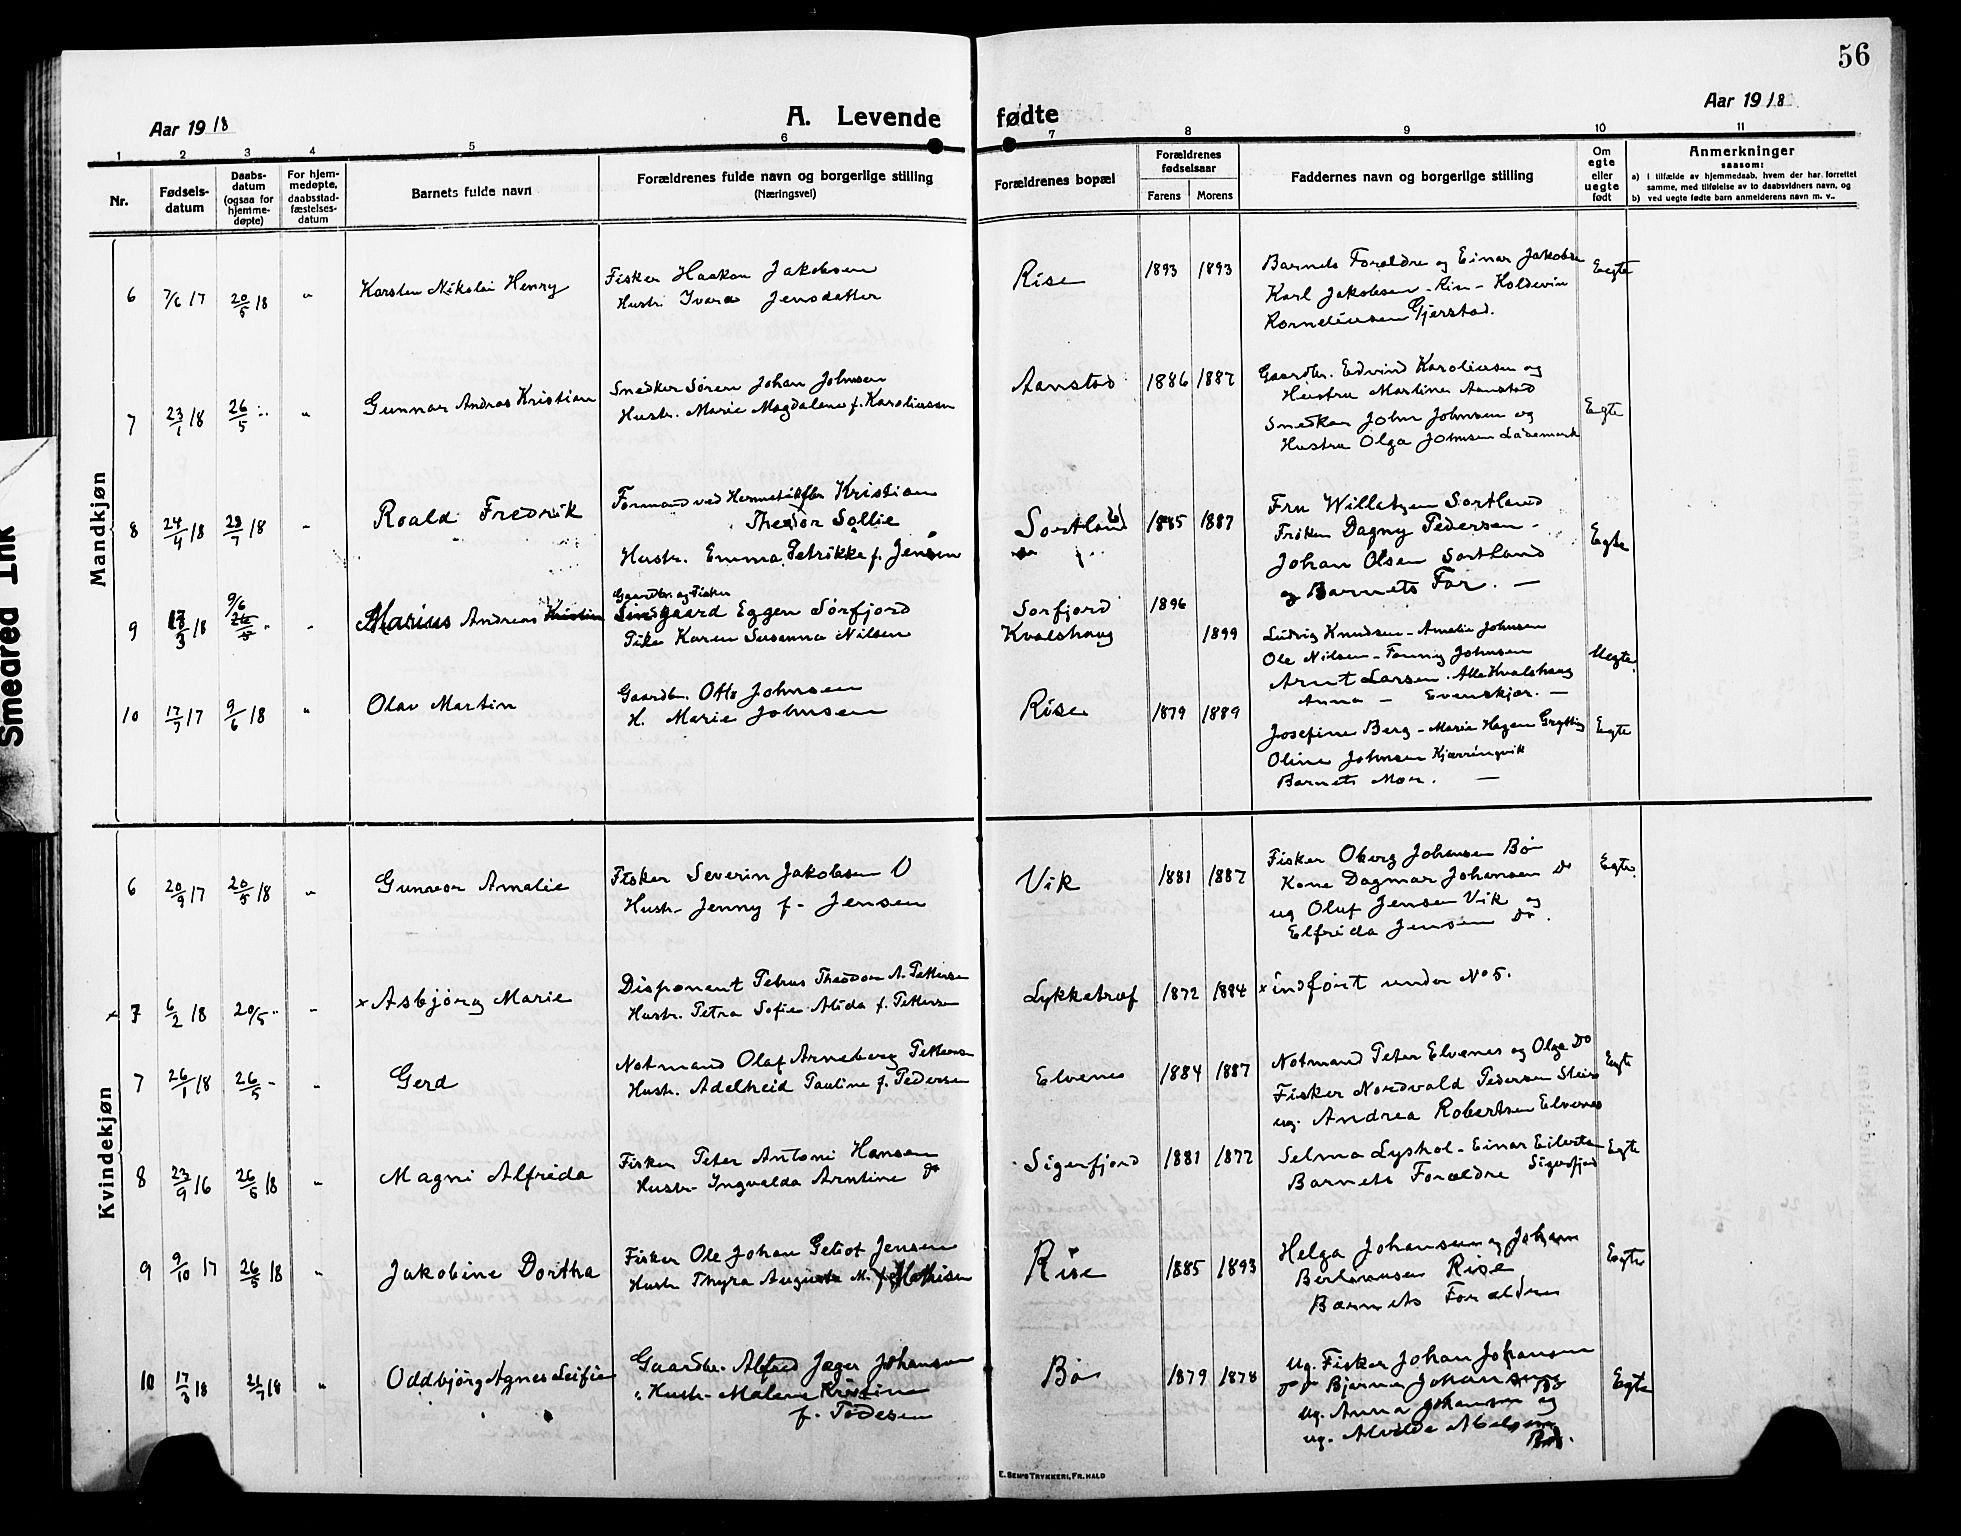 56
Aar 1918
A. Levende fødte
Aar 1918
1 2 3 4 5 6 7 8 9 10 11
Nr.
Fødsels-datum
Daabs-datum (ogsaa for hjemme-døpte)
For hjem-medøpte, daabsstad-fæstelses-datum
Barnets fulde navn
Forældrenes fulde navn og borgerlige stilling
(Næringsvei)
Forældrenes bopæl
Forældrenes fødselsaar
Farens Morens
Faddernes navn og borgerlige stilling
Om egte eller uegte født
Anmerkninger
saasom:
a) I tilfælde av hjemmedaab, hvem der har forrettet samme, med tilføielse av to daabsvidners navn, og
b) ved uegte fødte barn anmelderens navn m. v..
Smeared Ink
Mandkjøn
6 7/6 17 20/5 18 " Karsten Nikolai Henry
Fisker Haakon Jakobsen
Hustr. Ivara Jensdatter
Rise 1893 1893
Barnets Forældre og Einar Jakobsen
Karl Jakobsen - Rise - Koldevin
Korneliussen Gjerstad.
Egte
7 23/1 18 26/5 " " Gunnar Andras Kristian
Snedker Søren Johan Johnsen
Hustr. Marie Magdalene f. Karoliussen
Aanstad 1886 1887
Gaardbr. Edvind Karoliusen og
Hustru Martine Aanstad
Snedker John Johnsen og
Hustru Olga Johnsen Lademark
Egte
8 24/4 18 28/7 18 " Roald Fredrik
Formand ved Hermetikfbr Kristian
Theodor Sollie
Hustr. Emma Petrikke f. Jensen
Sortland 1885 1887
Fru Willatzen Sortland
Frøken Dagny Pedersen -
Johan Olsen Sortland
og Barnets Far. -
Egte
9 18 9/6 26/5 " " Marius Andreas Kristian
Gaardbr. og Fisker
Sindgaard Eggen Sørfjord
Pike Karen Susanna Nilsen
Sorfjord 1896
Kvalshaug 1899
Ludvig Knudsen - Amalie Johnsen
Ole Nilsen - Fanny Johnsen
Arnt Larsen. Alle Kvalshaug
Anna - Evenskjær. -
Uegte
10 17/7 17 9/6 18 " Olav Martin
Gaardb. Otto Johnsen
H. Marie Johnsen
Rise 1879 1889
Josefine Berg - Marie Hagen Grytting
Oline Johnsen Kjærringvik
Barnets Mor. -
Egte
Kvindekjøn
6 20/9 17 20/5 18 " Gunvor Amalie
Fisker Severin Jakobsen
Hustr. Jenny f. Jensen
Vik 1881 1887
Fisker Oberg Johansen Bø
Kone Dagmar Johansen Do
ug Oluf Jensen Vik og
Elfrida Jensen Do.
Egte.
x 7 6/2 18 20/5 " " x Asbjørg Marie
Disponent Petrus Theodor A. Pettersen
Hustr. Petra Sofie Alida f. Pettersen
Lykketræf 1872 1884
x indført under No 5.
7 26/1 18 26/5 " " Gerd
Notmand Olaf Arneberg Pettersen
Hustr. Adelheid Pauline f. Pedersen
Elvenes 1884 1887
Notmand Peter Elvenes og Olga Do
Fisker Nordvald Pedersen Steiro
ug. Andrea Robertsen Elvenes
Egte
8 23/9 16 26/5 18 " Magni Alfrida
Fisker Peter Antoni Hansen
Hustr. Ingvalda Arntine Do
Sigerfjord 1881 1872
Selma Lyshol - Einar Eilertsen
Barnets Forældre Sigerfjord
Egte
9 9/10 17 26/5 18 " Jakobine Dorthea
Fisker Ole Johan Jensen
Hustr Thyra Augusta M. f.
Rise 1885 1893
Helga Johansen og Johan
Rise
Barnets Forældre
Egte
10 17/3 18 21/7 18 " Oddbjørg Agnes Leifie
Gaardbr. Alfred Jæger Johansen
Hustr. Malene Kristine
f. Todesen
Bø 1879 1878
Ug. Fisker Johan Johansen
Do Do Bjarne Johansen Bø
Ug. Anna Johansen og
ug. Alvilde Abelsen
Bø.
Egte
E. SEM'S TRYKKERI, FR.HALD